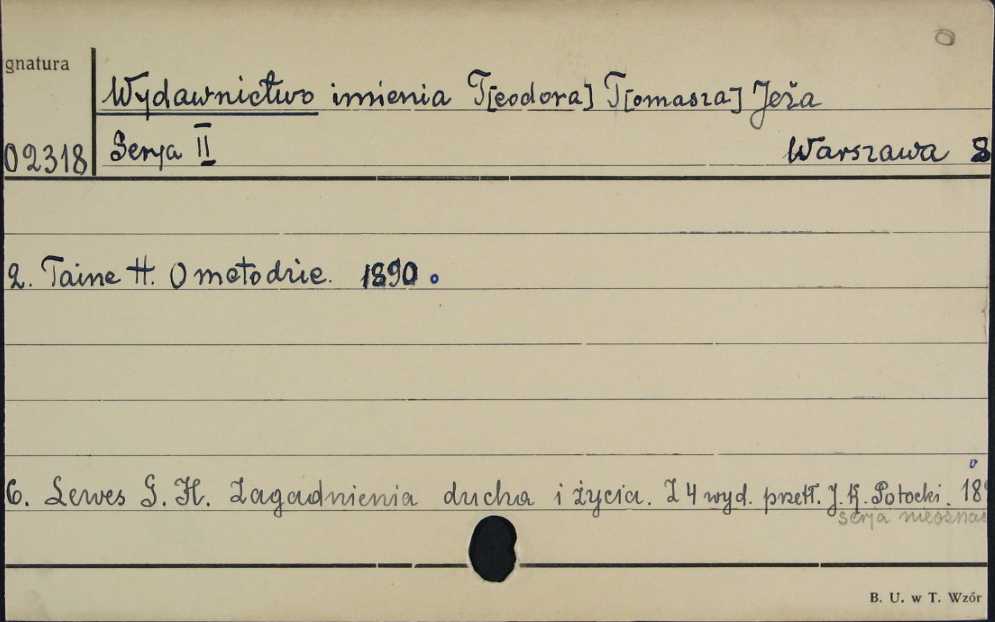 gnatura
Wydawnictwo imienia T[eodora] T[omasza] Jeża
02318 Serja II Warszawa 8
2. Taine H. O metodzie. 1890
6. Lewes G. H. Zagadnienia ducha i życia. Z 4 wyd. przetł. J. K. Potocki. 18
serja
B. U. w T. Wzór